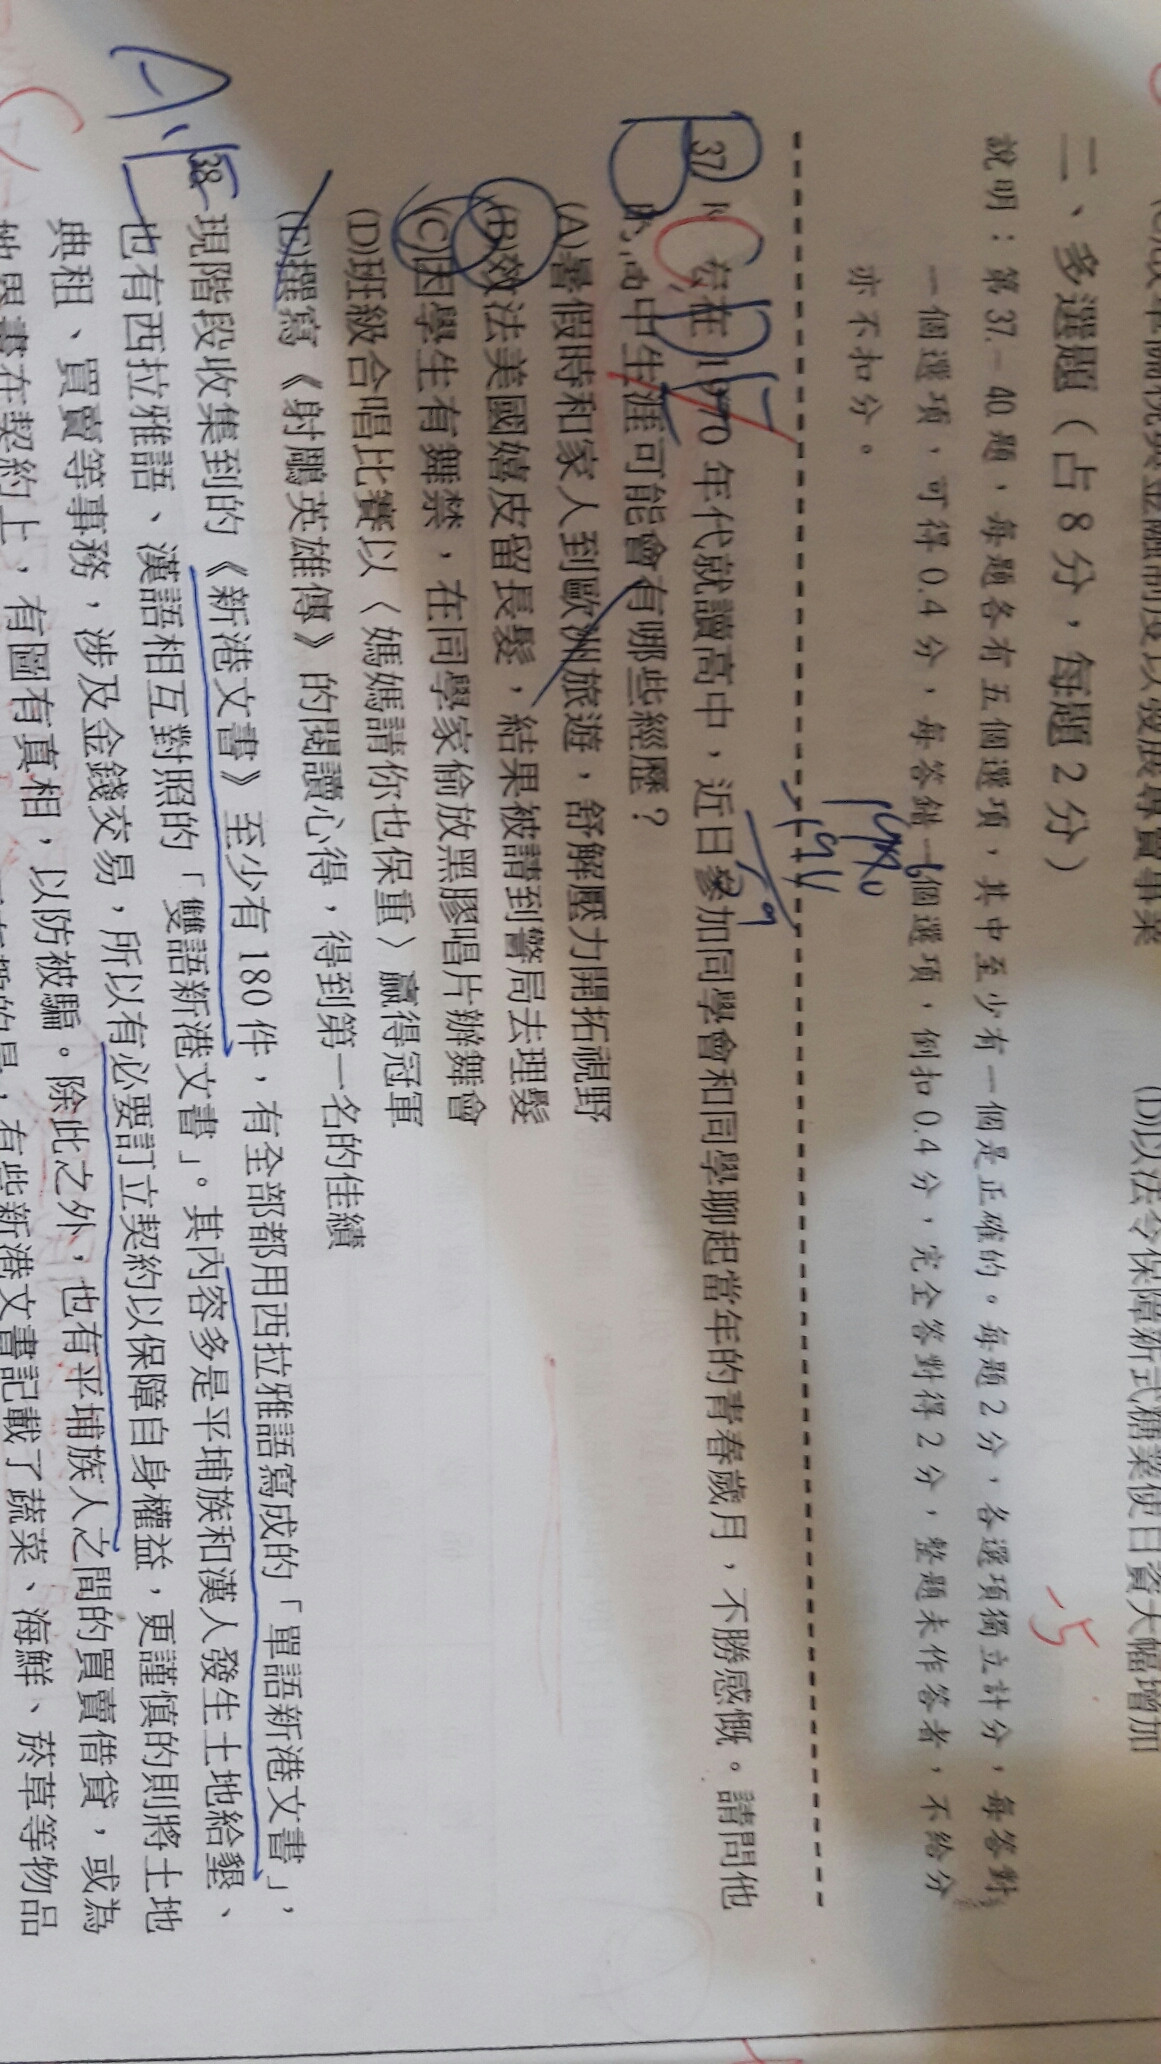 (D)以法令保障新式糖業使日資大幅增加
二、多選題（占8分，每題2分）
-5
說明：第37.－40題，每題各有五個選項，其中至少有一個是正確的。每題2分，各選項獨立計分，每答對
一個選項，可得0.4分，每答錯一個選項，倒扣0.4分，完全答對得2分，整題未作答者，不給分
亦不扣分。
BCDE
37
在1970年代就讀高中，近日參加同學會和同學聊起當年的青春歲月，不勝感慨。請問他
的高中生涯可能會有哪些經歷？
(A)暑假時和家人到歐洲旅遊，舒解壓力開拓視野
(B)效法美國嬉皮留長髮，結果被請到警局去理髮
(C)因學生有舞禁，在同學家偷放黑膠唱片辦舞會
(D)班級合唱比賽以〈媽媽請你也保重〉贏得冠軍
(E)撰寫《射鵰英雄傳》的閱讀心得，得到第一名的佳績
A
38
現階段收集到的《新港文書》至少有180件，有全部都用西拉雅語寫成的「單語新港文書」，
也有西拉雅語、漢語相互對照的「雙語新港文書」。其內容多是平埔族和漢人發生土地給墾、
典租、買賣等事務，涉及金錢交易，所以有必要訂立契約以保障自身權益，更謹慎的則將土地
地界畫在契約上，有圖有真相，以防被騙。除此之外，也有平埔族人之間的買賣借貸，或為
的是，有些新港文書記載了蔬菜、海鮮、菸草等物品